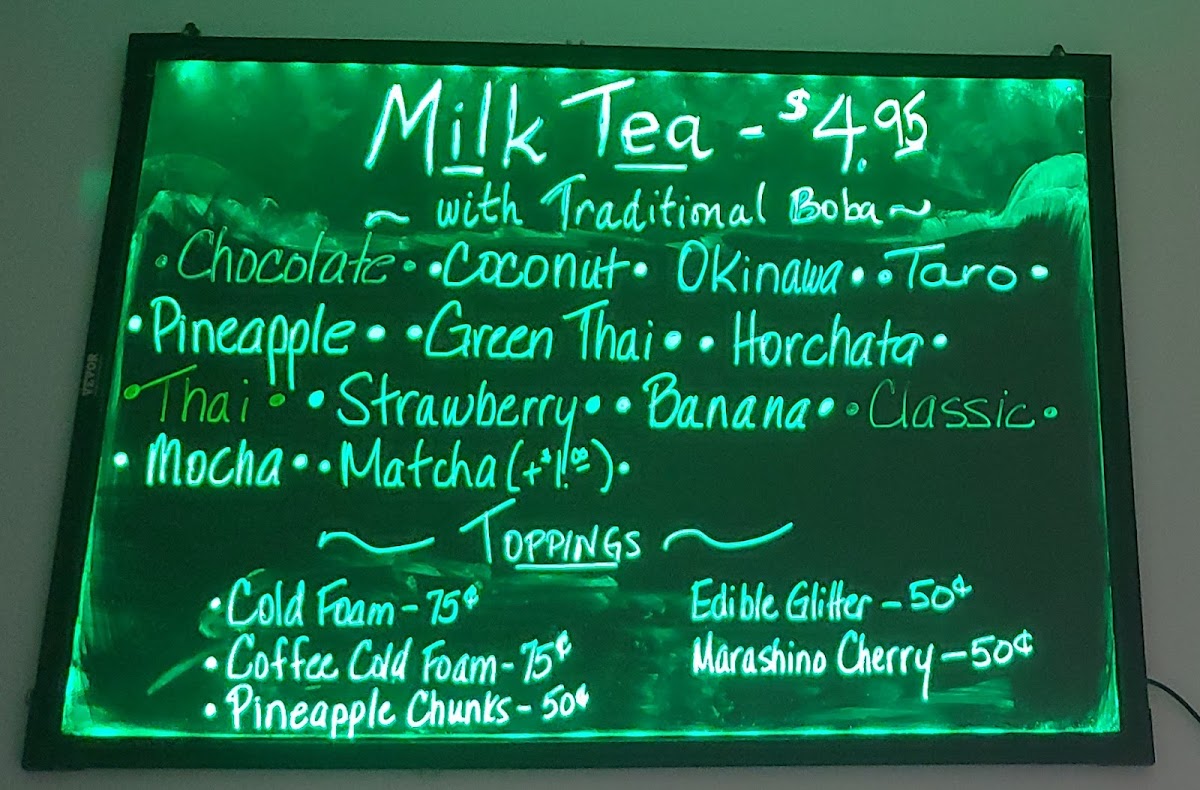 Milk Tea - $4.95
~ with Traditional Boba ~
• Chocolate • • Coconut • Okinawa • • Taro •
• Pineapple • • Green Thai • • Horchata •
• Thai • • Strawberry • • Banana • • Classic •
• Mocha • • Matcha (+$1.00) •
~ Toppings ~
• Cold Foam - 75¢
• Coffee Cold Foam - 75¢
• Pineapple Chunks - 50¢
Edible Glitter - 50¢
Marashino Cherry - 50¢
VEVOR